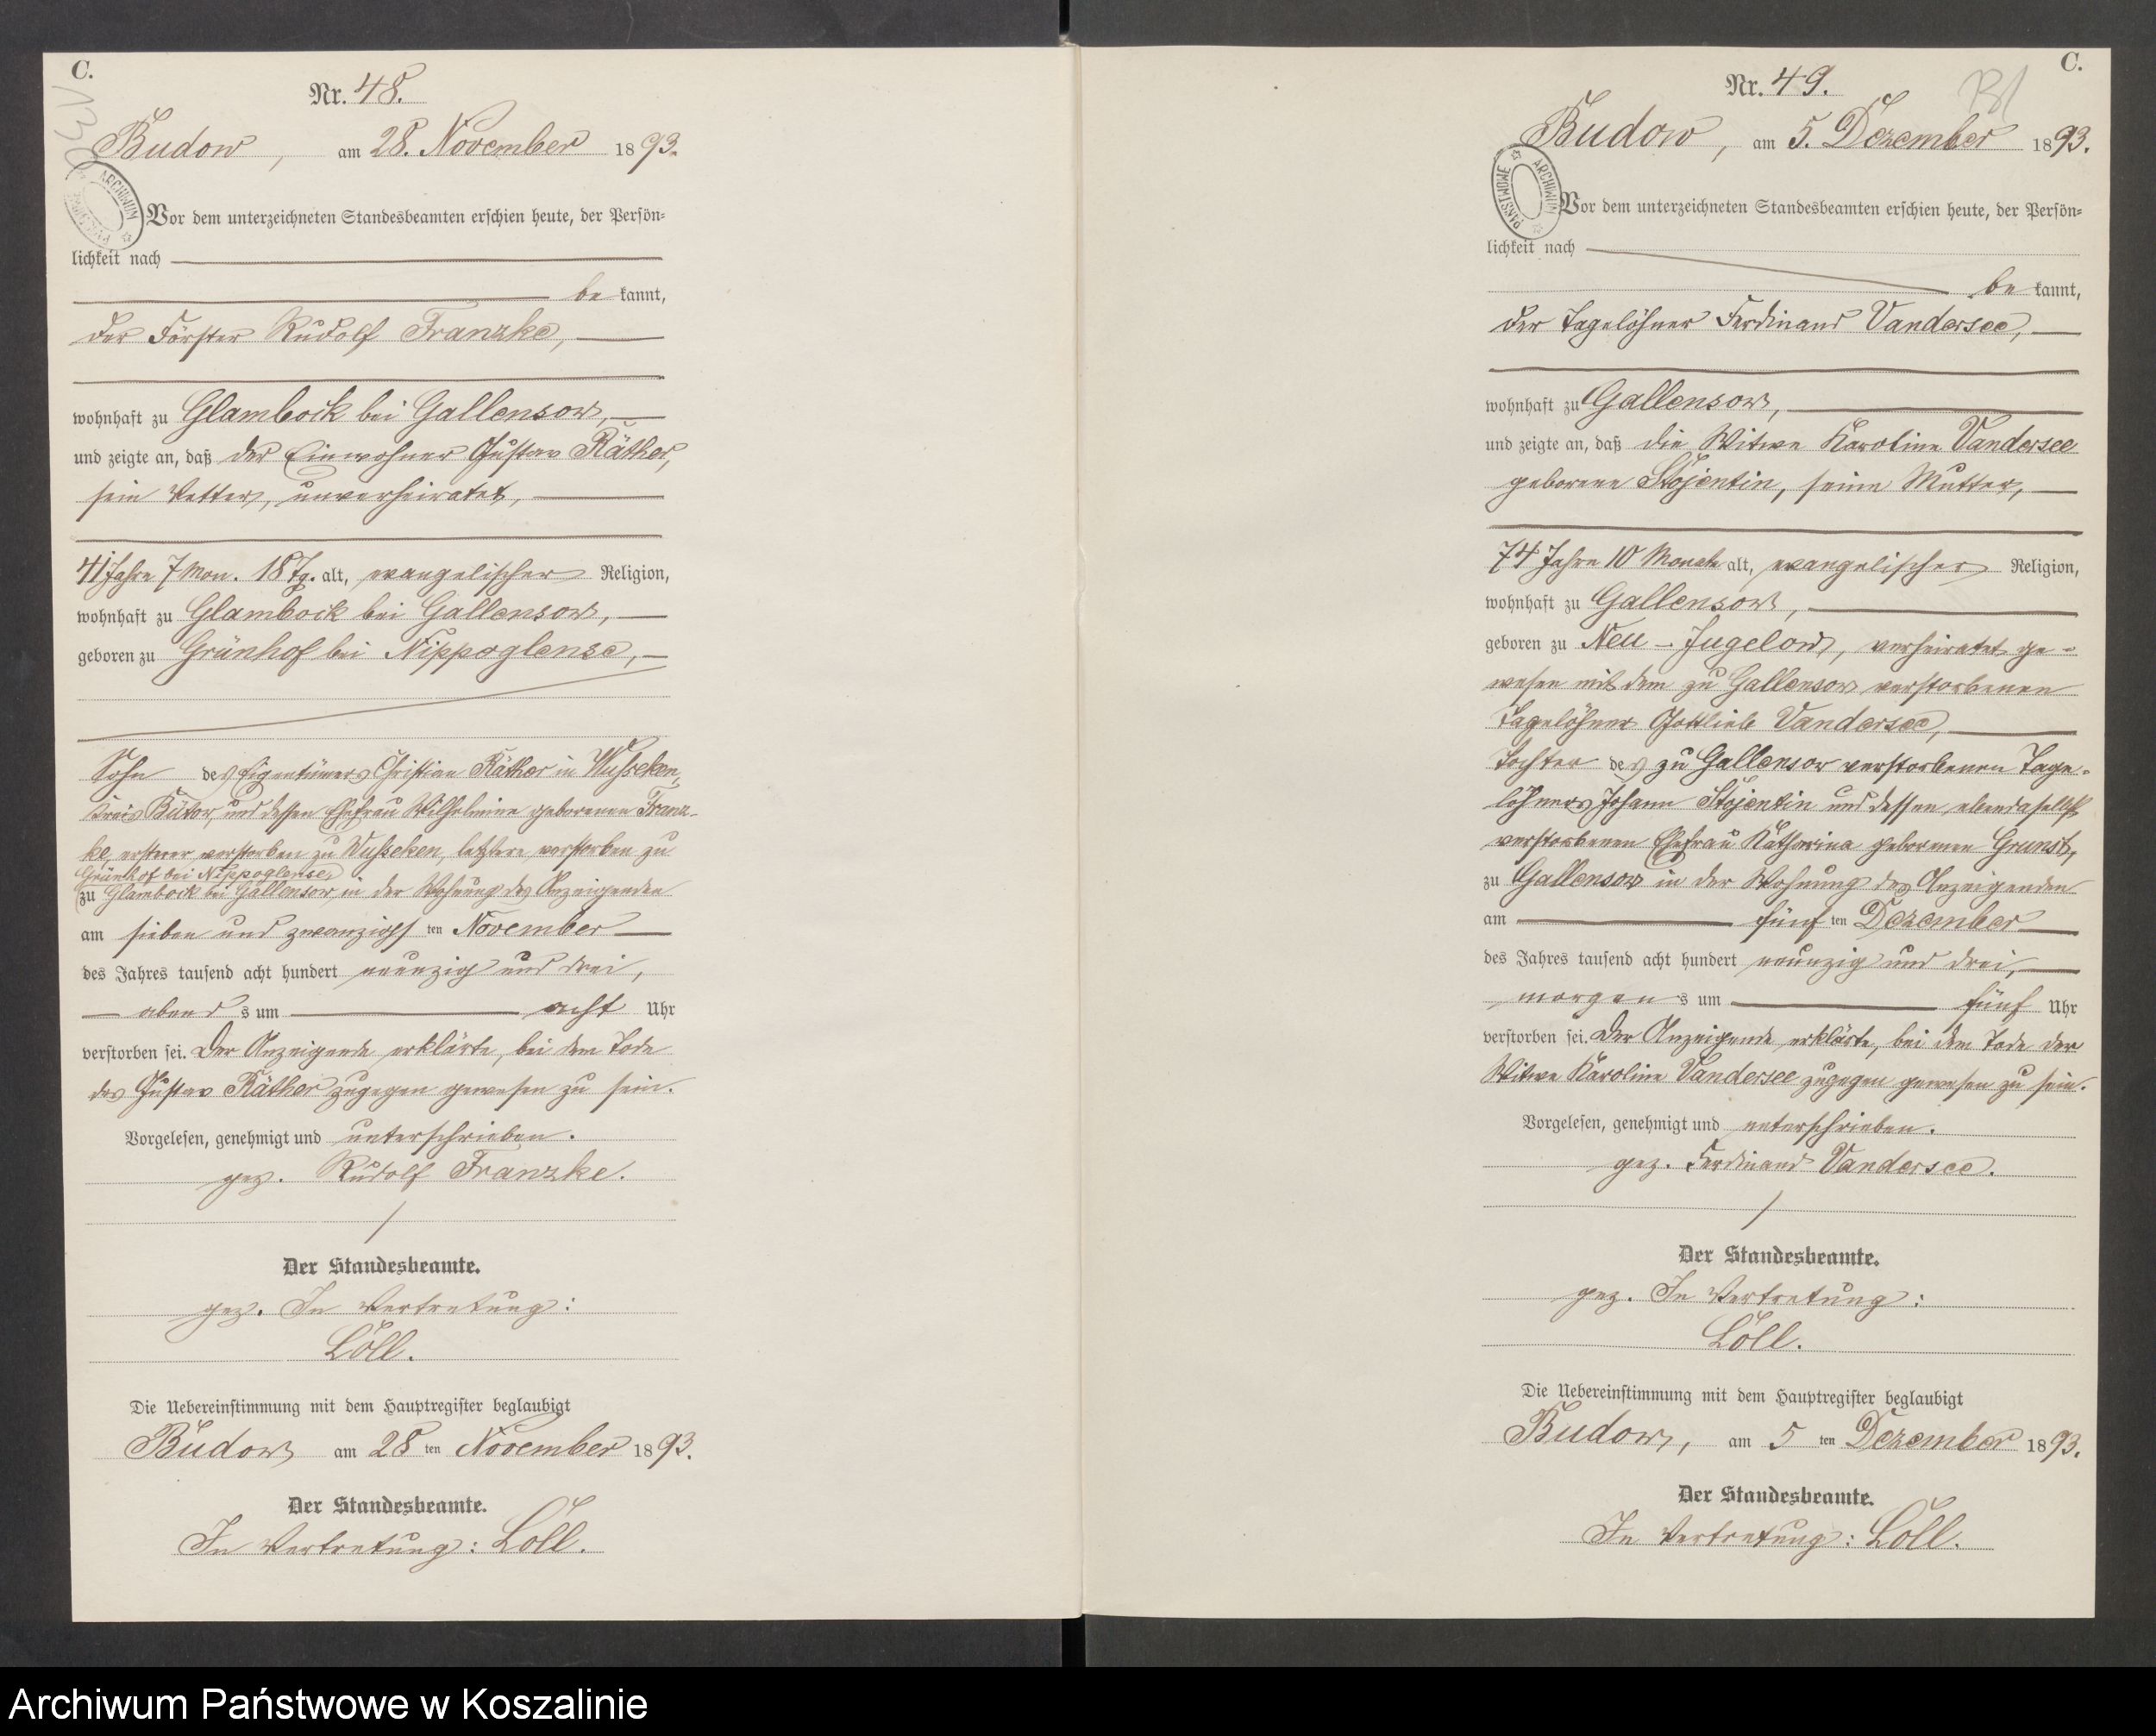 C.
Nr. 48.
Budow, am 28. November 1893.
ARCHIWUM
Vor dem unterzeichneten Standesbeamten erschien heute, der Persön=
lichkeit nach
be kannt,
der Förster Rudolf Franzke,
wohnhaft zu Glambock bei Gallensow,
und zeigte an, daß der Einwohner Gustav Räther,
sein Vetter, unverheiratet,
41 Jahre 7 Mon. 18 Tg. alt, evangelischer Religion,
wohnhaft zu Glambock bei Gallensow,
geboren zu Grünhof bei Nippoglense,
Sohn des Eigentümers Christian Räther in Wusseken,
Kreis Bütow, und dessen Ehefrau Wilhelmine geborenen Franz-
ke, ersterer verstorben zu Wusseken, letztere verstorben zu
Grünhof bei Nippoglense,
zu Glambock bei Gallensow, in der Wohnung des Anzeigenden
am sieben und zwanzigs ten November
des Jahres tausend acht hundert neunzig und drei,
abend s um acht Uhr
verstorben sei. Der Anzeigende erklärte, bei dem Tode
des Gustav Räther zugegen gewesen zu sein.
Vorgelesen, genehmigt und unterschrieben.
gez. Rudolf Franzke.
Der Standesbeamte.
gez. In Vertretung:
Löll.
Die Uebereinstimmung mit dem Hauptregister beglaubigt
Budow am 28 ten November 1893.
Der Standesbeamte.
In Vertretung: Löll.
C.
Nr. 49.
Budow, am 5. Dezember 1893.
ARCHIWUM PAŃSTWOWE
Vor dem unterzeichneten Standesbeamten erschien heute, der Persön=
lichkeit nach
be kannt,
der Tagelöhner Ferdinand Vandersee,
wohnhaft zu Gallensow,
und zeigte an, daß die Witwe Karoline Vandersee
geborene Stojentin, seine Mutter,
74 Jahre 10 Monate alt, evangelischer Religion,
wohnhaft zu Gallensow,
geboren zu Neu-Jugelow, verheiratet ge-
wesen mit dem zu Gallensow verstorbenen
Tagelöhner Gottlieb Vandersee,
Tochter des zu Gallensow verstorbenen Tage-
löhners Johann Stojentin und dessen, ebendaselbst
verstorbenen Ehefrau Katharina geborenen Grunst,
zu Gallensow in der Wohnung des Anzeigenden
am fünf ten Dezember
des Jahres tausend acht hundert neunzig und drei,
morgen s um fünf Uhr
verstorben sei. Der Anzeigende erklärte, bei dem Tode der
Witwe Karoline Vandersee zugegen gewesen zu sein.
Vorgelesen, genehmigt und unterschrieben.
gez. Ferdinand Vandersee.
Der Standesbeamte.
gez. In Vertretung:
Löll.
Die Uebereinstimmung mit dem Hauptregister beglaubigt
Budow, am 5 ten Dezember 1893.
Der Standesbeamte.
In Vertretung: Löll.
Archiwum Państwowe w Koszalinie